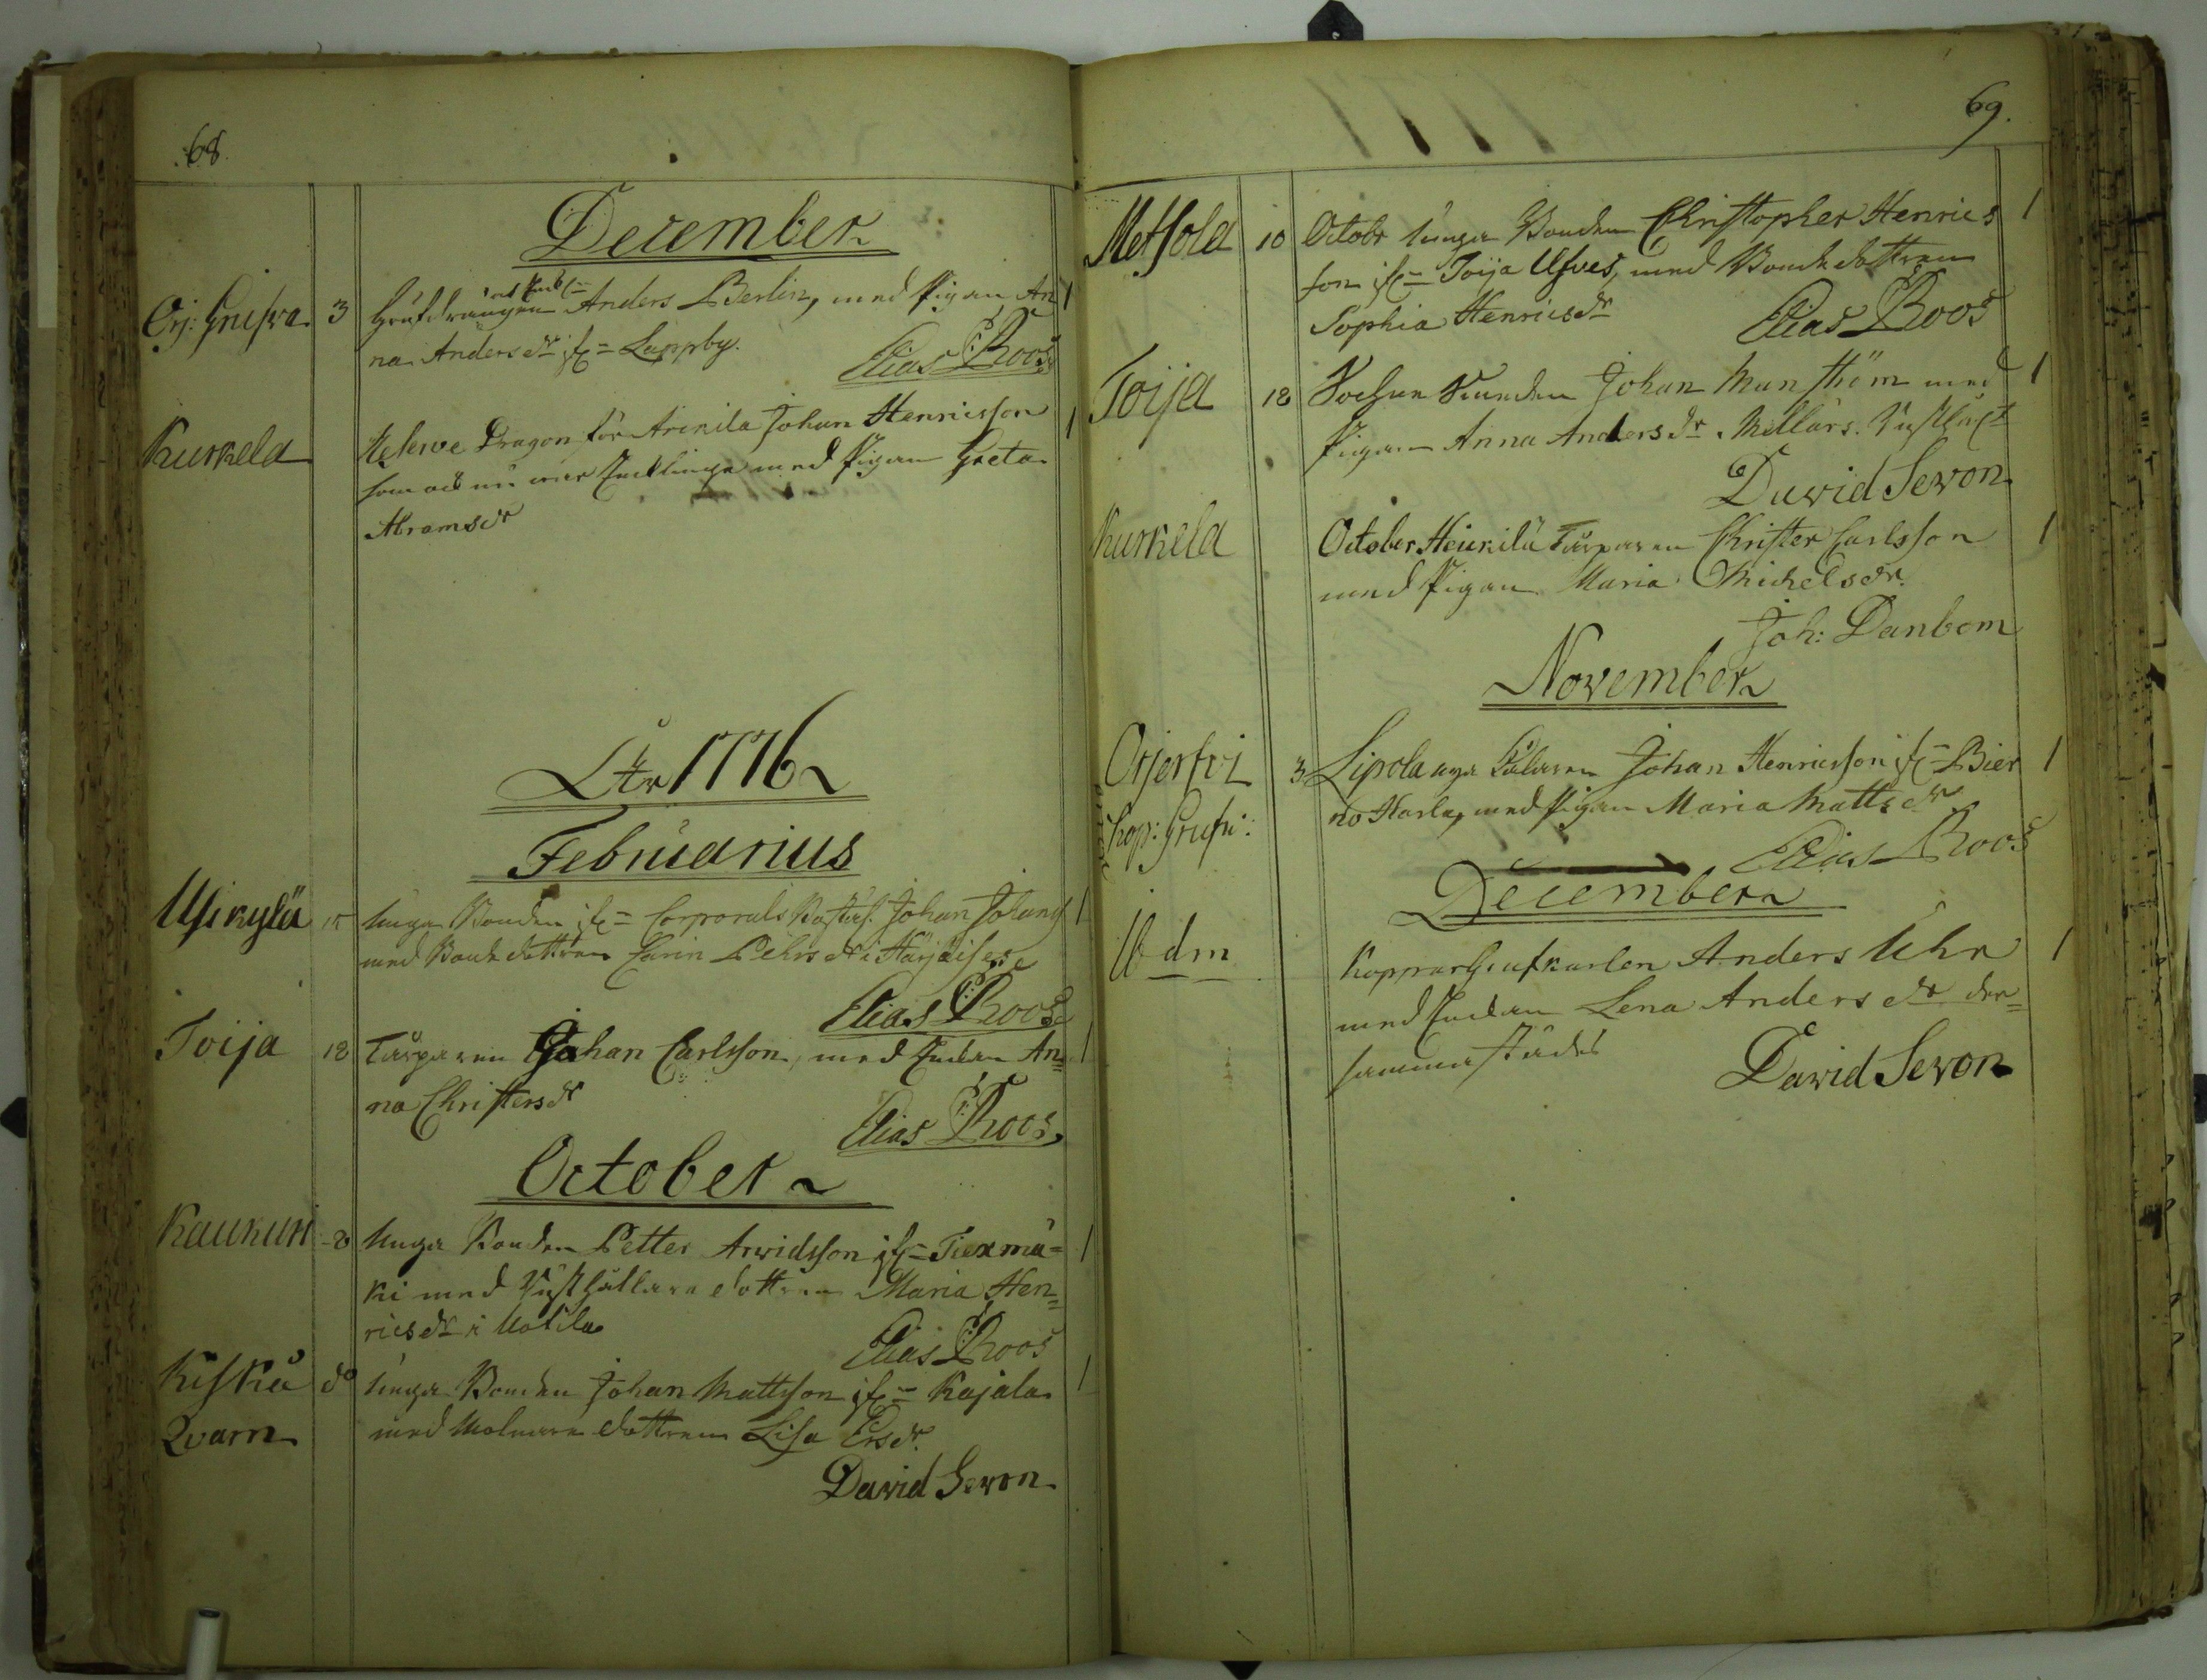 68.
December
Orj: Grufva 3 Grufdrängen Anders Berlin, med Pigan An 1
na Andersdr ifr= Lappby.
Elias Roos
Kurkela Dragon för Arinila Johan Henricsson 1
som och nu med Pigan Greta
Abramsdr
1776
Februarius
Usikylä 15 Unga Bonden ifr= Corporals Johan Johans 1
med Bonde dottren Carin Pehrsdr i
Elias Roos
Toija 18 Torparen Johan Carlsson, med Enkan An= 1
na Christersdr
Elias Roos
October
Kaukuri -8 Unga Bonden Petter Arwidsson ifr= Tiexmä= 1
ki med Rusthållare dottren Maria Hen=
ricsdr i
Elias Roos
Kiskå do Unga Bonden Johan Mattsson ifr= Kajala 1
Qvarn med Molnare dottren Lisa Ersdr.
David Sevon
69.
Metsola 10 Octobr Unga Bonden Christopher Henrics 1
son ifr= Toija Ufves, med Bonde dottren
Sophia Henricsdr
Elias Roos
Toija 18 Sochne Johan Munsthöm med 1
Pigan Anna Andersdr
David Sevon
Kurkela October Heickilä Torparen Christer Carlsson 1
med Pigan Maria Michelsdr.
Joh: Danbom
November
Orjerfvi 3 Lipola nya Johan Henricsson ifr= Bier 1
Kop: Grufv: no Harla, med Pigan Maria Mattsdr
Elias Roos
December
Ibdm KopparGrufkarlen Anders Uhr 1
med Enkan Lena Andersdr der=
sammastädes
David Sevon